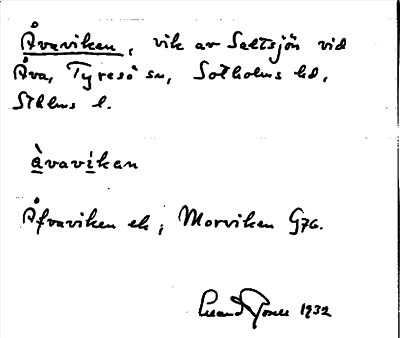 Åvaviken, vik av Saltsjön vid
Åva, Tyresö sn, Sotholms hd,
Sthlms l.
ȧvavi̇kan
Åfvaviken ek; Morviken G76.
1932